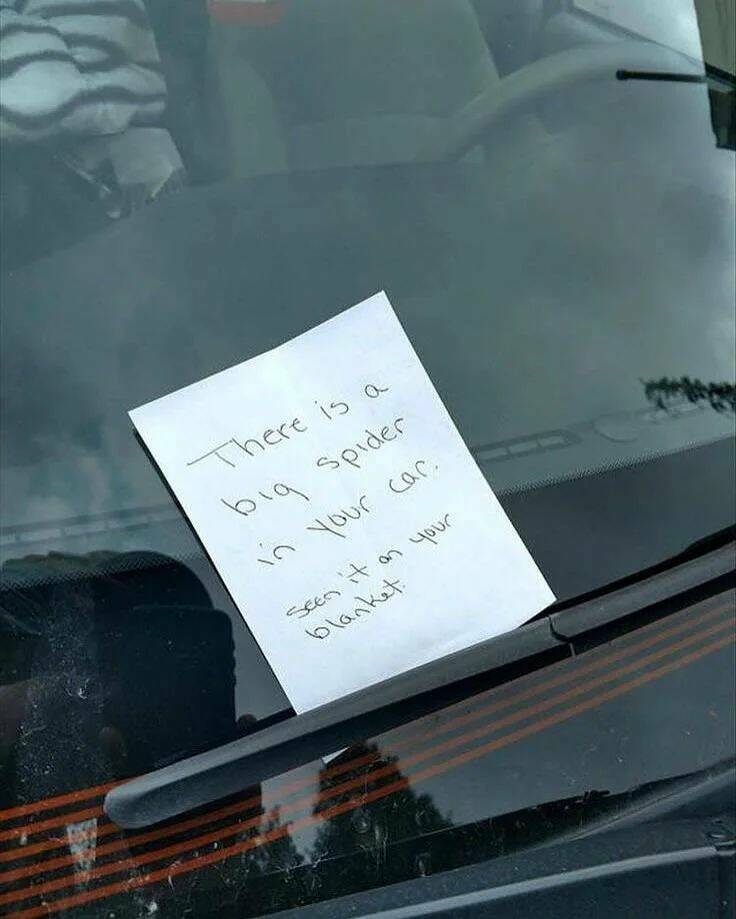 There is a
big spider
in your car.
seen it on your
blanket.